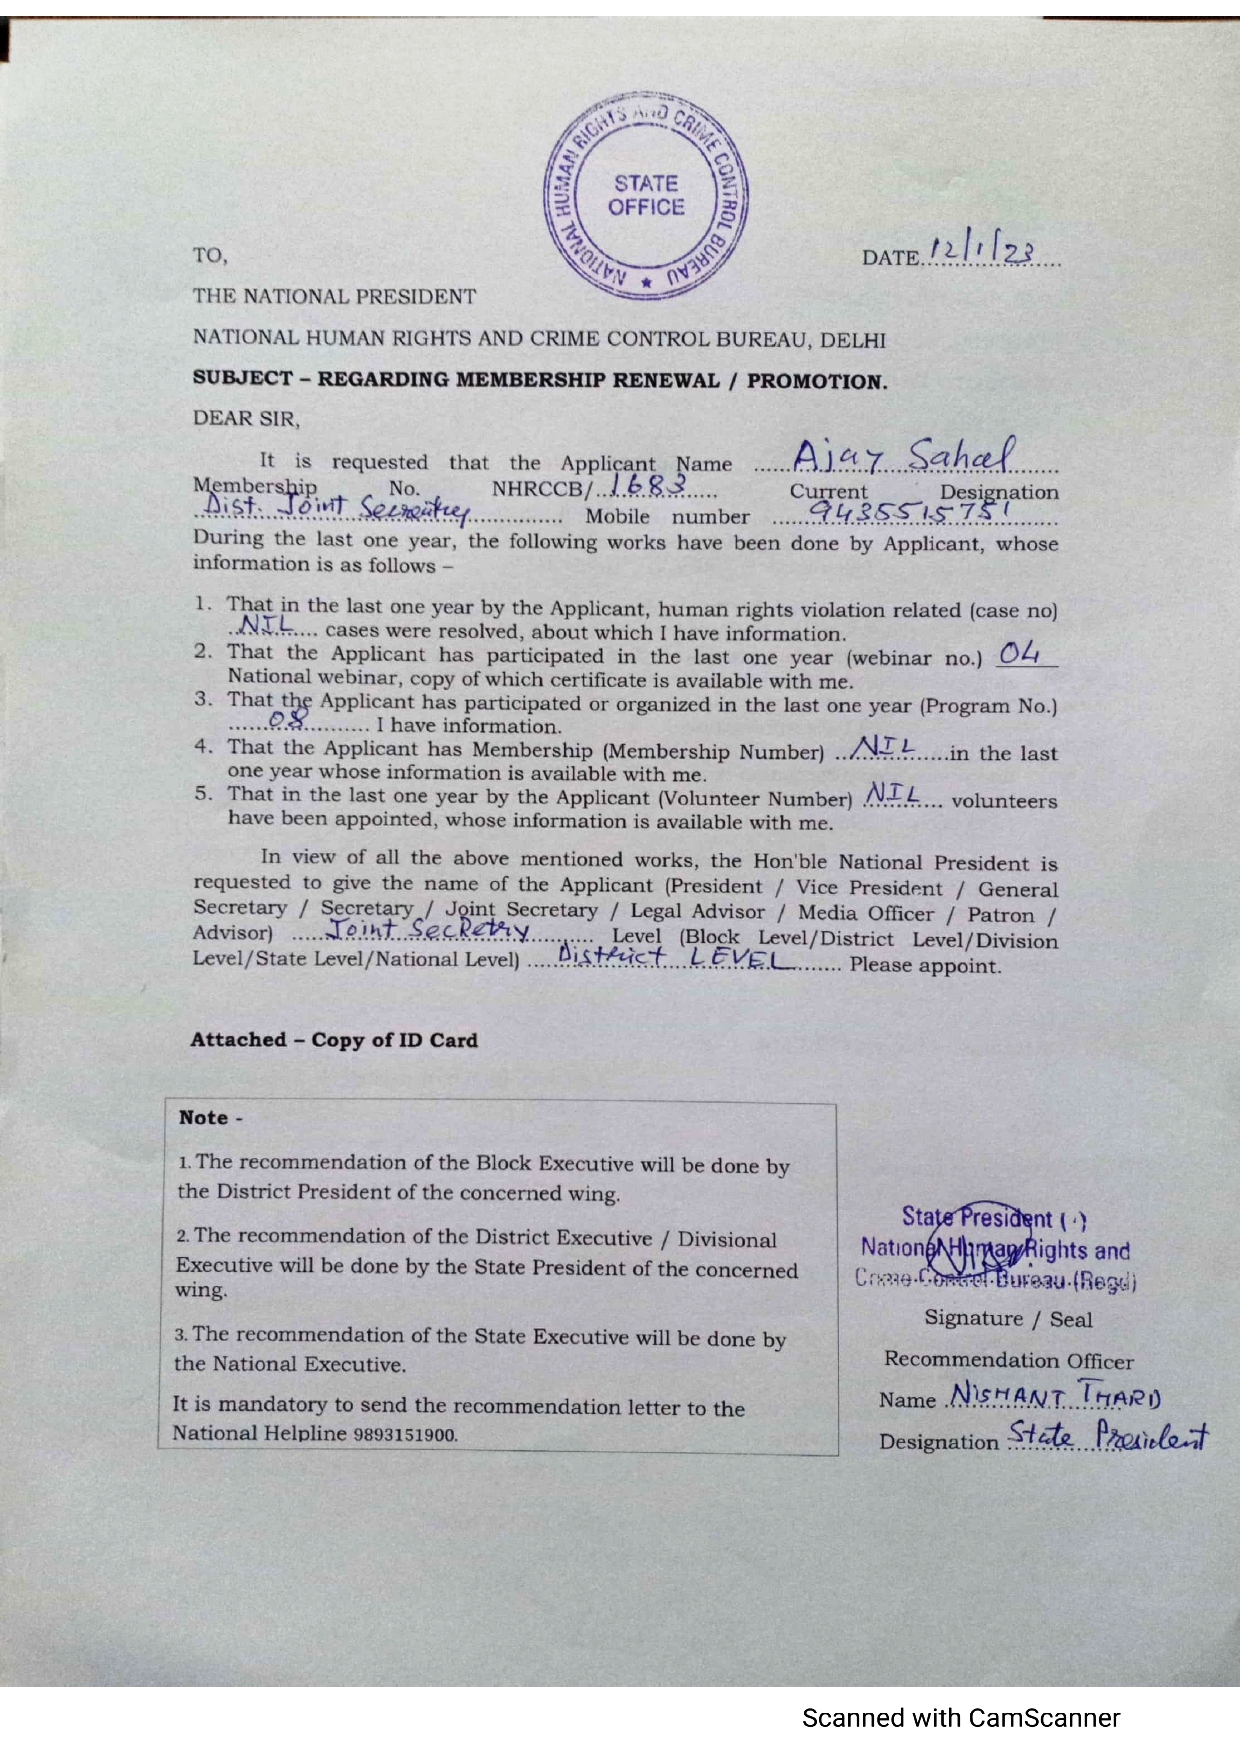 NATIONAL HUMAN RIGHTS AND CRIME CONTROL BUREAU
STATE
OFFICE
TO,
DATE 12/1/23
THE NATIONAL PRESIDENT
NATIONAL HUMAN RIGHTS AND CRIME CONTROL BUREAU, DELHI
SUBJECT – REGARDING MEMBERSHIP RENEWAL / PROMOTION.
DEAR SIR,
It is requested that the Applicant Name ...... Ajay ......
Membership No. NHRCCB/..1683..... Current Designation
Dist. Joint .............. Mobile number ......9435515751......
During the last one year, the following works have been done by Applicant, whose
information is as follows –
1. That in the last one year by the Applicant, human rights violation related (case no)
..NIL.... cases were resolved, about which I have information.
2. That the Applicant has participated in the last one year (webinar no.) 04
National webinar, copy of which certificate is available with me.
3. That the Applicant has participated or organized in the last one year (Program No.)
......08.......... I have information.
4. That the Applicant has Membership (Membership Number) ..NIL.....in the last
one year whose information is available with me.
5. That in the last one year by the Applicant (Volunteer Number) .NIL.... volunteers
have been appointed, whose information is available with me.
In view of all the above mentioned works, the Hon'ble National President is
requested to give the name of the Applicant (President / Vice President / General
Secretary / Secretary / Joint Secretary / Legal Advisor / Media Officer / Patron /
Advisor) .....Joint SecRetry.......... Level (Block Level/District Level/Division
Level/State Level/National Level) .....District LEVEL........ Please appoint.
Attached – Copy of ID Card
Note -
1. The recommendation of the Block Executive will be done by
the District President of the concerned wing.
2. The recommendation of the District Executive / Divisional
Executive will be done by the State President of the concerned
wing.
3. The recommendation of the State Executive will be done by
the National Executive.
It is mandatory to send the recommendation letter to the
National Helpline 9893151900.
State President
National Human Rights and
Crime Control Bureau (Regd)
Signature / Seal
Recommendation Officer
Name NISHANT THARD
Designation State President
Scanned with CamScanner